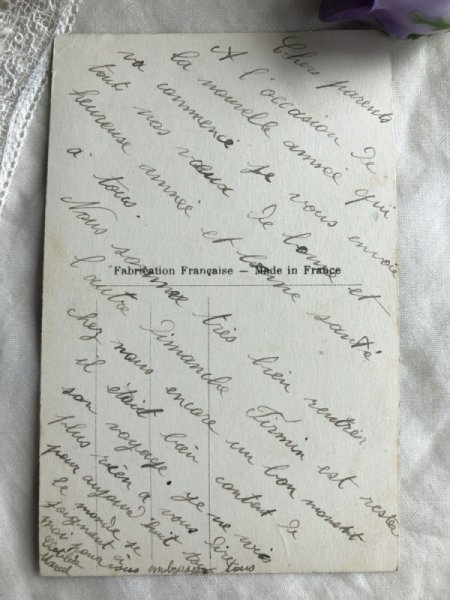 Chers parents
A l'occasion de
la nouvelle année qui
va commencé je vous envoie
tout nos vœux de bonne et
heureuse année et bonne santé
à tous.
Nous sommes très bien rentrer
l'autre Dimanche Firmin est rester
chez nous encore un bon moment
il était bien content de
son voyage. Je ne vois
plus rien a vous dire
pour aujourd'huit tous
le monde se
joignent à
moi pour vous embrasser tous
Marcel
Fabrication Française — Made in France